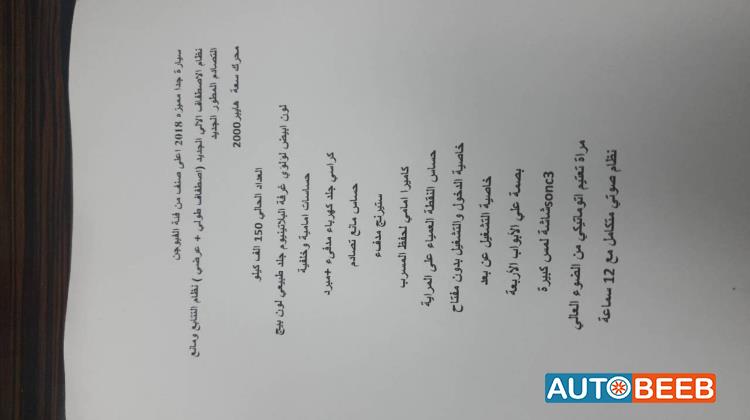 سيارة جدا مميزه 2018 اعلى صنف من فئة الفيوجن
نظام الاصطفاف الالي الجديد (اصطفاف طولي + عرضي) نظام التتابع ومانع
التصادم المطور الجديد
محرك سعة هايبر2000
لون ابيض لؤلؤي غرفة البلاتينيوم جلد طبيعي لون بيج
العداد الحالي 150 الف كيلو
حساسات امامية وخلفية
كراسي جلد كهرباء مدفىء +مبرد
حساس مانع تصادم
ستيرنج مدفاء
كاميرا امامي لحفظ المسرب
حساس النقطة العمياء على المراية
خاصية الدخول والتشغيل بدون مفتاح
خاصية التشغيل عن بعد
بصمة على الأبواب الاربعة
شاشة لمس كبيرة sonc3
مراة تعتيم اتوماتيكي من الضوء العالي
نظام صوتي متكامل مع 12 سماعة
AUTOBEEB